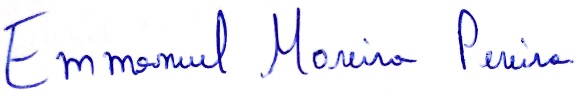 Emmanuel Moreira Pereira